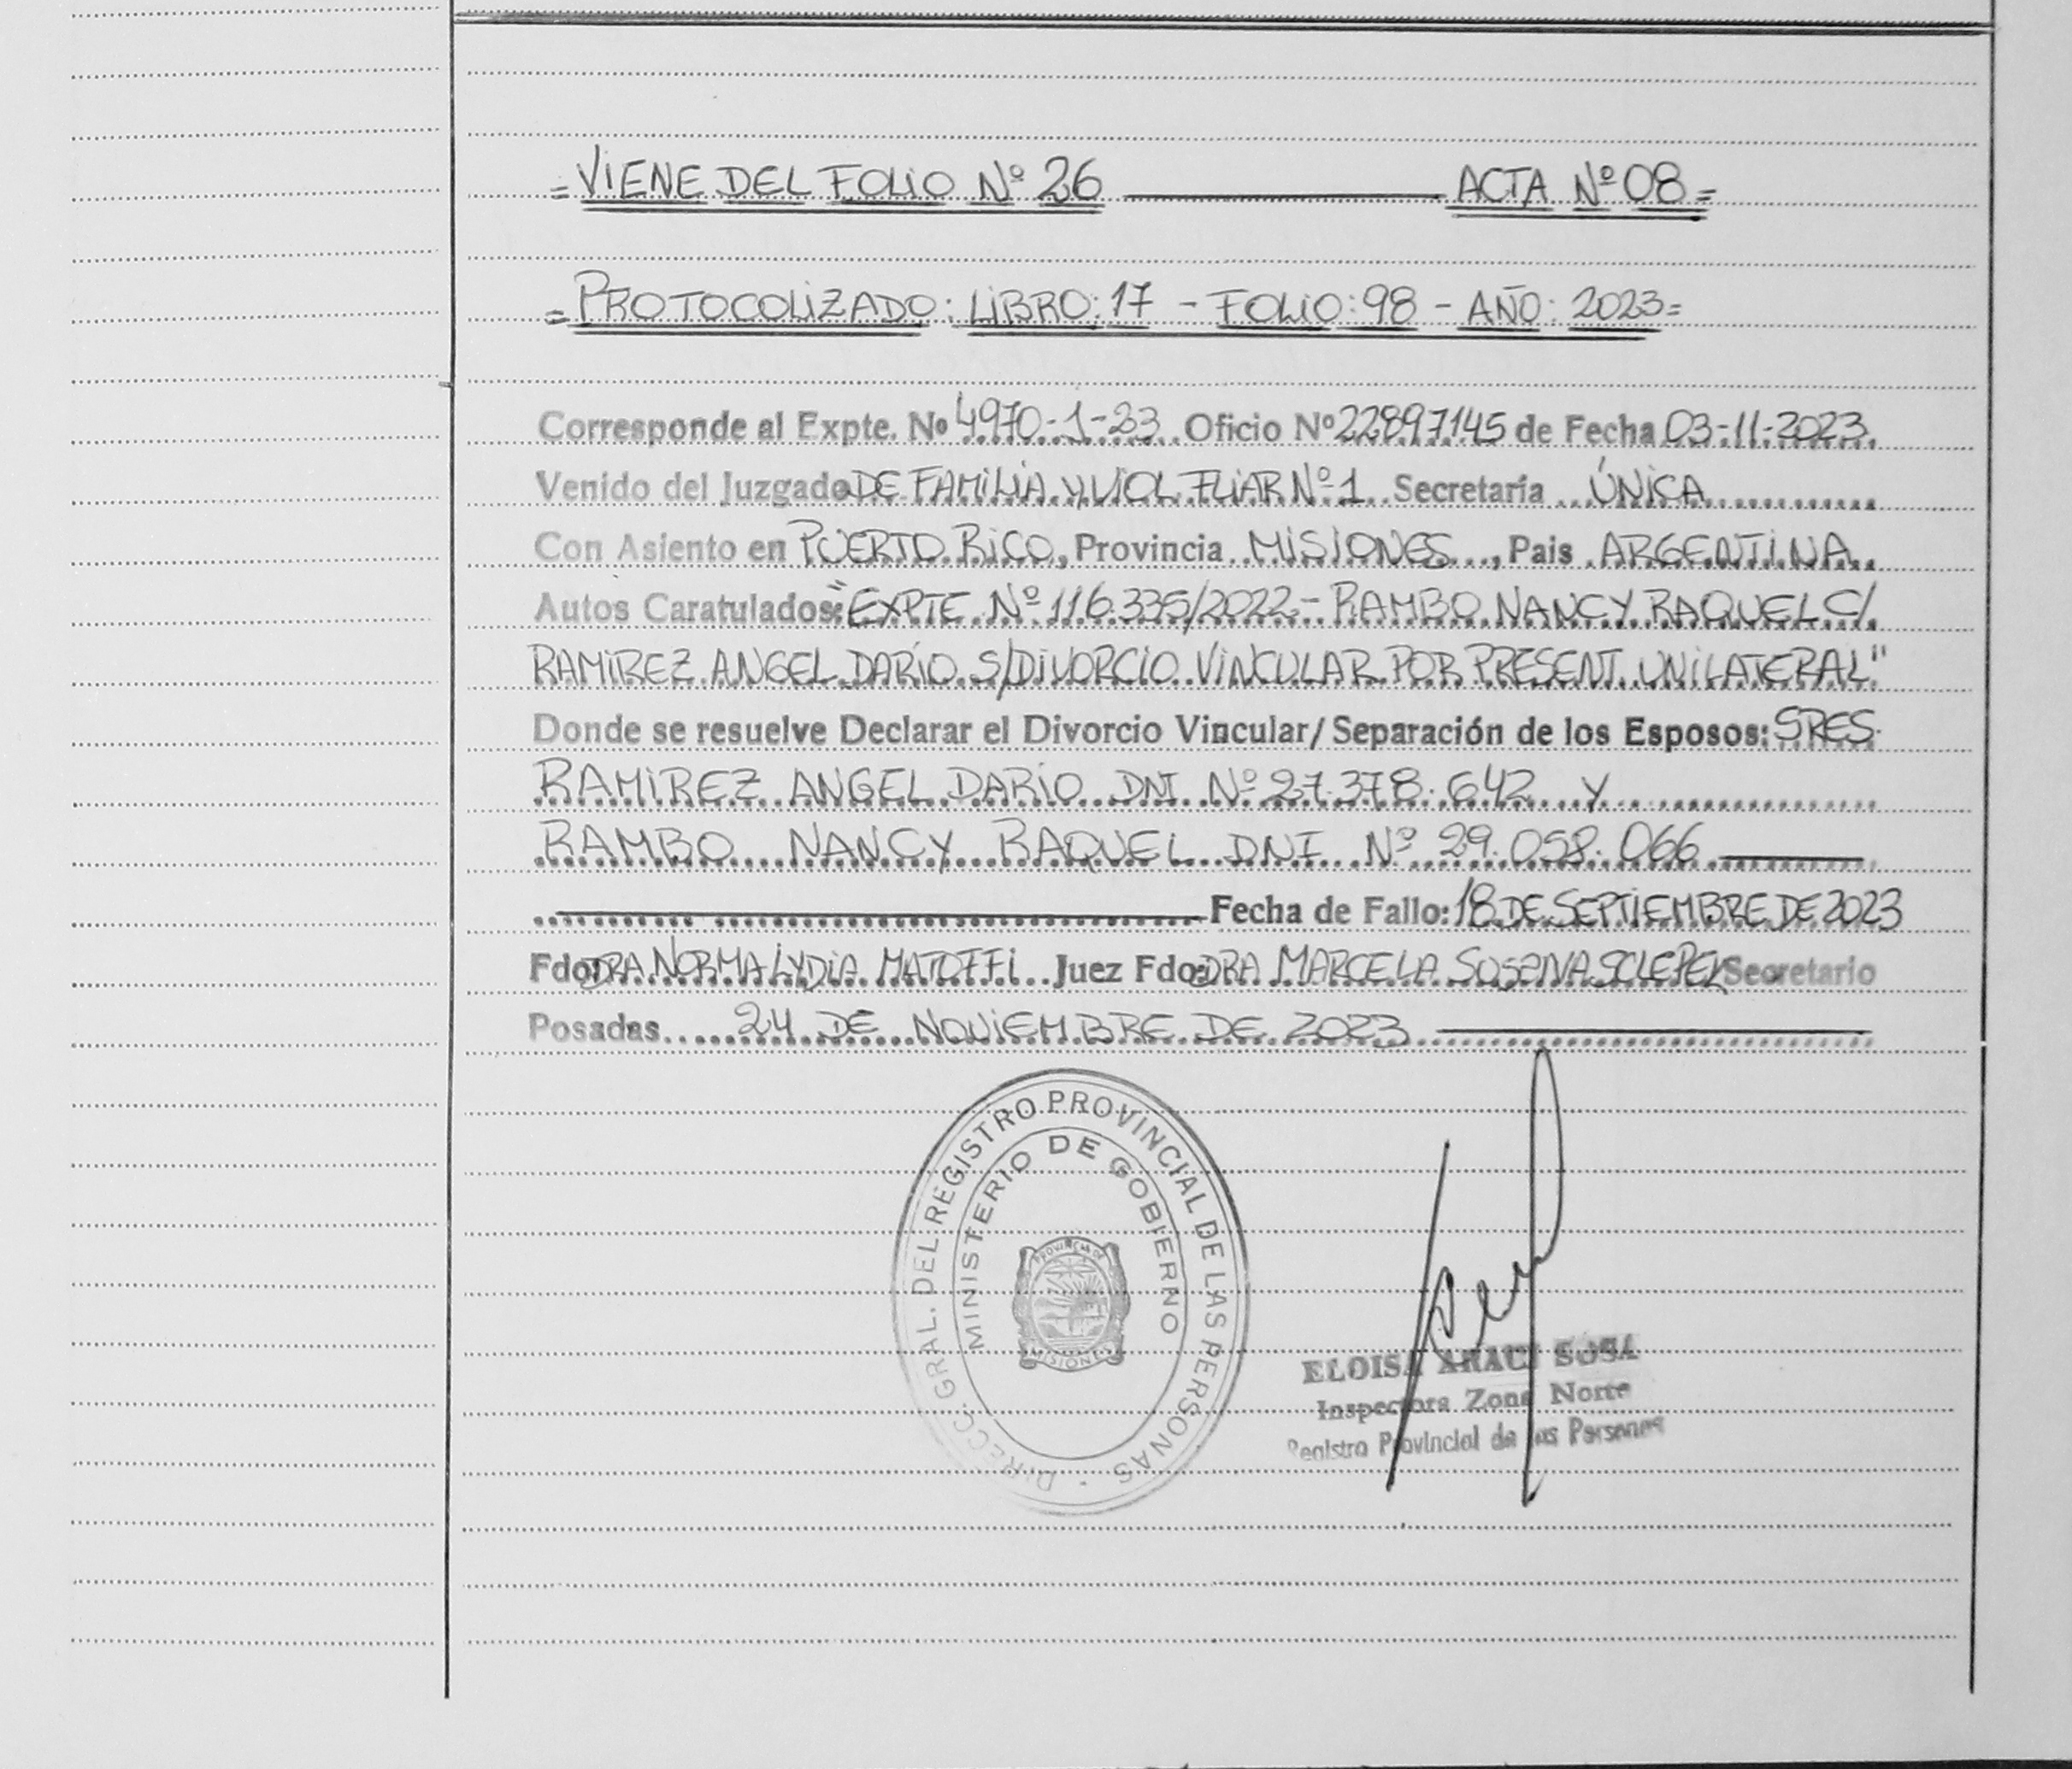 =VIENE DEL FOLIO Nº 26 ——— ACTA Nº 08=
=PROTOCOLIZADO: LIBRO: 17 - FOLIO: 98 - AÑO: 2023=
Corresponde al Expte. Nº 4970-1-23 Oficio Nº 22897145 de Fecha 03-11-2023
Venido del Juzgado DE FAMILIA Y VIOL FLIAR Nº 1 Secretaría ÚNICA
Con Asiento en PUERTO RICO, Provincia MISIONES, Pais ARGENTINA
Autos Caratulados: "EXPTE Nº 116.335/2022 - RAMBO NANCY RAQUEL C/
RAMIREZ ANGEL DARÍO S/DIVORCIO VINCULAR POR PRESENT. UNILATERAL"
Donde se resuelve Declarar el Divorcio Vincular/ Separación de los Esposos: SRES.
RAMIREZ ANGEL DARÍO DNI Nº 27.378.642 Y
RAMBO NANCY RAQUEL DNI Nº 29.058.066
Fecha de Fallo: 18 DE SEPTIEMBRE DE 2023
Fdo: DRA NORMA LYDIA MATOFFI Juez Fdo: DRA MARCELA SUSANA SCLEPEK Secretario
Posadas 24 DE NOVIEMBRE DE 2023
DIRECC. GRAL. DEL REGISTRO PROVINCIAL DE LAS PERSONAS
MINISTERIO DE GOBIERNO
PROVINCIA DE
MISIONES
ELOISA ARACI SOSA
Inspectora Zona Norte
Registro Provincial de las Personas